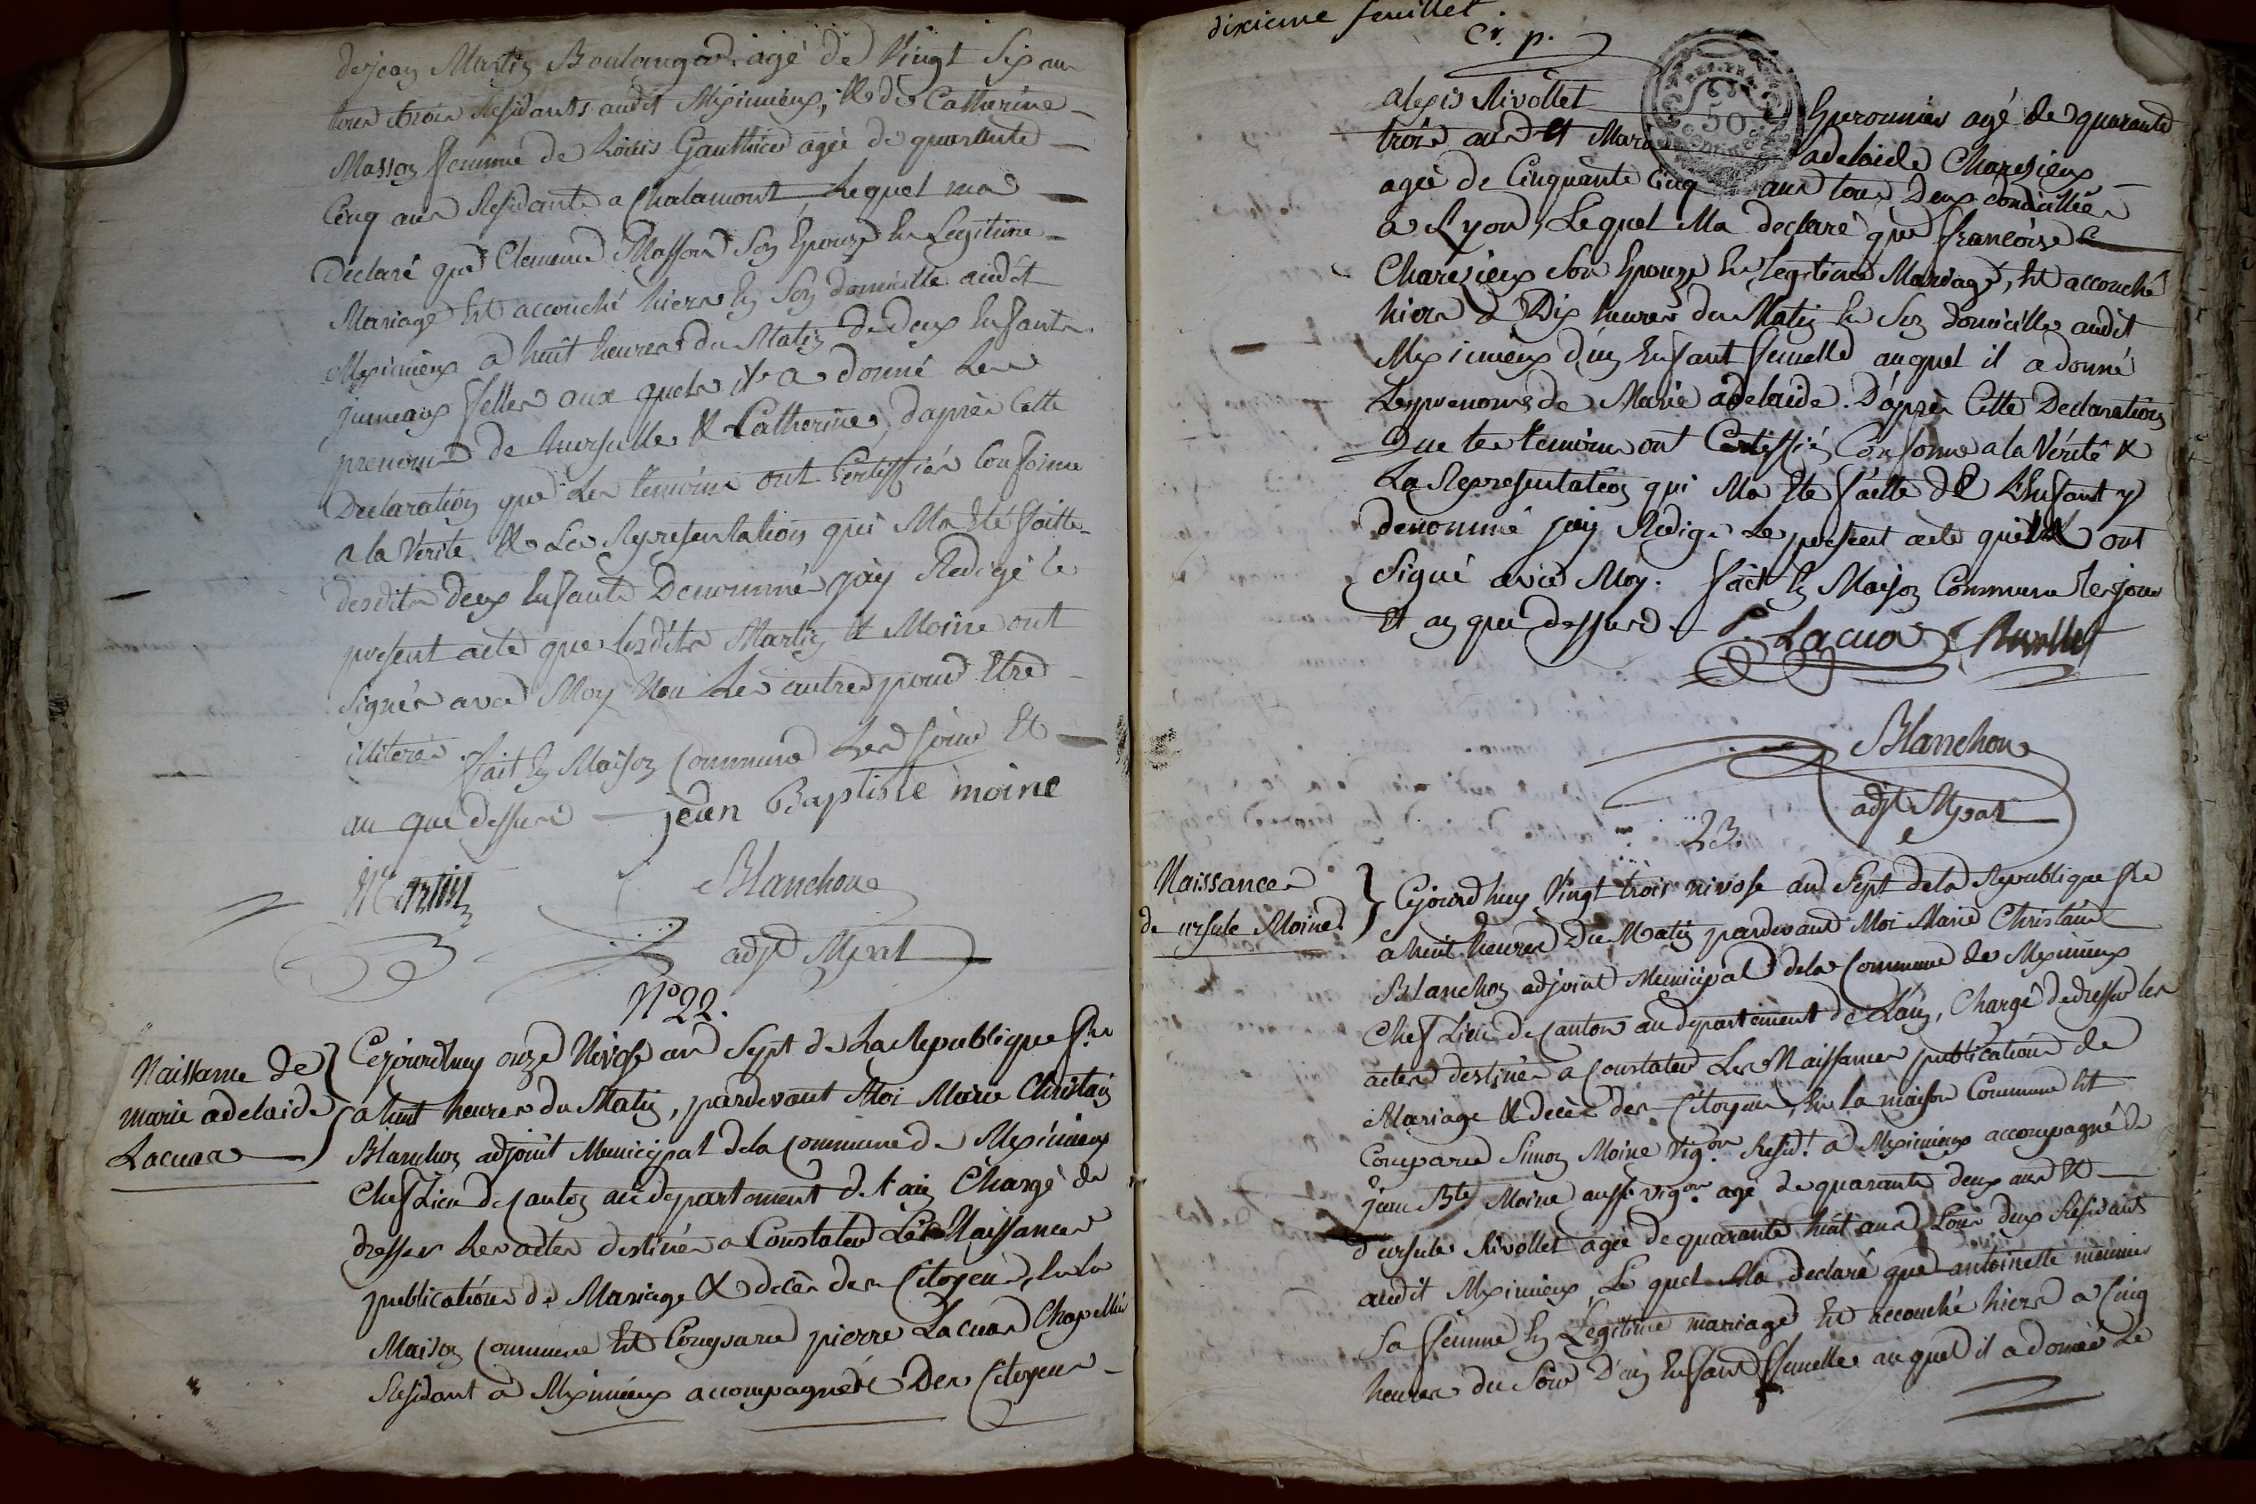 de jean Martin Boulanger agé de Vingt Six ans
tous trois Residants audit Meximieux, & de Catherine
Masson femme de Louis Gauthier agée de quarante
Cinq ans Residante a Chalamont, Lequel ma
Declaré que Clemence Masson Son Epouze En Legitime
Mariage Est accouché hiere En Son domicille audit
Meximieux a huit heures du Matin de deux Enfants
jumeaux filles aux quels il a donné Les
prenoms de hursulle & Catherine, dapres Cette
Declaration que Les temoins ont Certiffiés Conforme
a la Verité & La Representation qui Ma Eté faitte
desdits deux Enfants Denommé jay Redigé le
present acte que lesdits Martin & Moine ont
Signés avec Moy Non Les autres pour Etre
illiterés. fait En Maison Commune Les jour Et
an que dessus jean Baptiste moine
Martin Blanchon
adjt Mpal
N° 22.
Naissance de
marie adelaide
Lacua
Cejourdhuy onze Nivose an Sept de La Republique fse
a huit heures du Matin, pardevant Moi Marie Christain
Blanchon adjoint Municipal dela Commune de Meximieux
Chef Lieu de Canton au departement de L'ain Chargé de
dresser Les actes destinés a Constater Les Naissances
publications de Mariage & décès des Citoyens, En La
Maison Commune Est Comparu pierre Lacua Chapellier
Residant a Meximieux accompagné Des Citoyens
dixieme feuillet
Cr. p.
alexis Rivollet Eperonnier agé de quarante
trois ans Et Marie adelaide Charezieux
agée de Cinquante Cinq ans tous Deux domicilliés
a Lyon, Lequel Ma declaré que francoise
Charezieux Son Epouze En Legitime Mariage, Est accouché
hiere a Dix heures du Matin En Son domicille audit
Meximieux d'un Enfant femelle auquel il a donné
Les prenoms de Marie adelaide. D'après Cette Declaration
Que les temoins ont Certiffié Conforme a la Vérité &
La Representation qui Ma Ete faitte de L'Enfant y
denommé jay Redigé Le present acte qu'ils ont
Signé avec Moy. fait En Maison Commune les jour
Et an que dessus. P. Lacua Rivollet
Blanchon
adjt Mpal
23.
Naissance
de ursule Moine
Cejourdhuy Vingt trois nivose an Sept dela Republique fse
a huit heures Du Matin pardevant Moi Marie Christain
Blanchon adjoint Municipal dela Commune de Meximieux
Chef Lieu de Canton au departement de L'ain, Chargé de dresser les
actes destinés a Constater Les Naissances publications de
Mariage & décès des Citoyens, En la maison Commune Est
Comparu Simon Moine Vigon Residt a Meximieux accompagné de
jean Bte Moine aussi vigon agé de quarante deux ans &
d'ursule Rivollet agée de quarante huit ans tous deux Residants
audit Meximieux, Le quel Ma declaré que antoinette meunier
Sa femme En Legitime mariage Est accouché hiere a Cinq
heures du Soir D'un Enfant femelle auquel il a donné Le